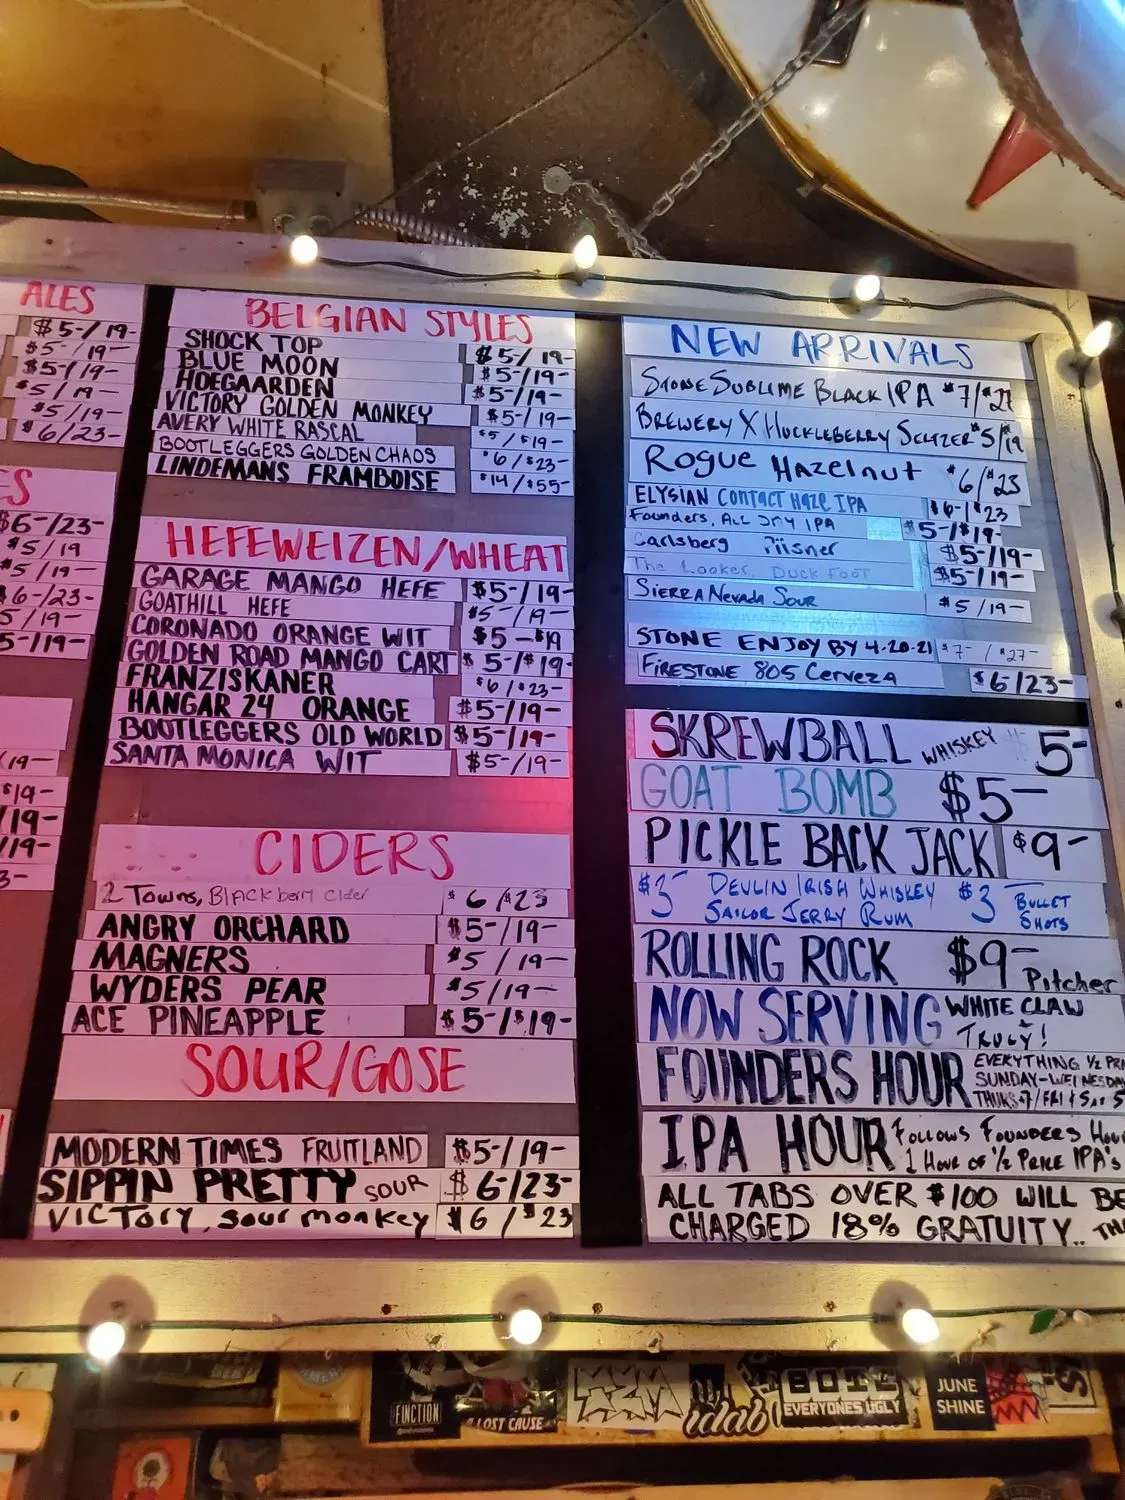 ALES
$5-/19-
$5-/19-
$5-/19-
$5/19-
$5/19-
$6/23-
ES
$6-/23-
$5/19
$5/19-
$6-/23-
5/19-
5-/19-
/19-
$19-
/19-
/19-
3-
BELGIAN STYLES
SHOCK TOP $5-/19-
BLUE MOON $5-/19-
HOEGAARDEN $5-/19-
VICTORY GOLDEN MONKEY $5-/19-
AVERY WHITE RASCAL $5/$19-
BOOTLEGGERS GOLDEN CHAOS $6/$23-
LINDEMANS FRAMBOISE $14/$55-
HEFEWEIZEN/WHEAT
GARAGE MANGO HEFE $5-/19-
GOATHILL HEFE $5-/19-
CORONADO ORANGE WIT $5-$19
GOLDEN ROAD MANGO CART $5-/$19-
FRANZISKANER $6/$23-
HANGAR 24 ORANGE $5-/19-
BOOTLEGGERS OLD WORLD $5-/19-
SANTA MONICA WIT $5-/19-
CIDERS
2 Towns, Blackberry Cider $6/$23
ANGRY ORCHARD $5-/19-
MAGNERS $5/19-
WYDERS PEAR $5/19-
ACE PINEAPPLE $5-/$19-
SOUR/GOSE
MODERN TIMES FRUITLAND $5-/19-
SIPPIN PRETTY SOUR $6-/23-
VICTORY, sour monkey $6/$23
NEW ARRIVALS
STONE SUBLIME BLACK IPA $7/$27
BREWERY X HUCKLEBERRY SELTZER $5/19
ROGUE HAZELNUT $6/$23
ELYSIAN CONTACT HAZE IPA $6-/$23
Founders, ALL DAY IPA $5-/$19-
Carlsberg Pilsner $5-/19-
The Looker, Duck Foot $5-/19-
SIERRA NEVADA SOUR $5/19-
STONE ENJOY BY 4-20-21 $7-/$27-
FIRESTONE 805 Cerveza $6-/23-
SKREWBALL WHISKEY $5-
GOAT BOMB $5-
PICKLE BACK JACK $9-
$3- DEVLIN IRISH WHISKEY $3 BULLET
SAILOR JERRY RUM SHOTS
ROLLING ROCK $9- Pitcher
NOW SERVING WHITE CLAW
TRULY!
FOUNDERS HOUR EVERYTHING 1/2 PR
SUNDAY-WEDNESDAY
THURS-7/FRI & SAT 5
IPA HOUR FOLLOWS FOUNDERS HOU
1 HOUR OF 1/2 PRICE IPA's
ALL TABS OVER $100 WILL BE
CHARGED 18% GRATUITY.. TH
FUNCTION
A LOST CAUSE
EVERYONES UGLY
JUNE
SHINE